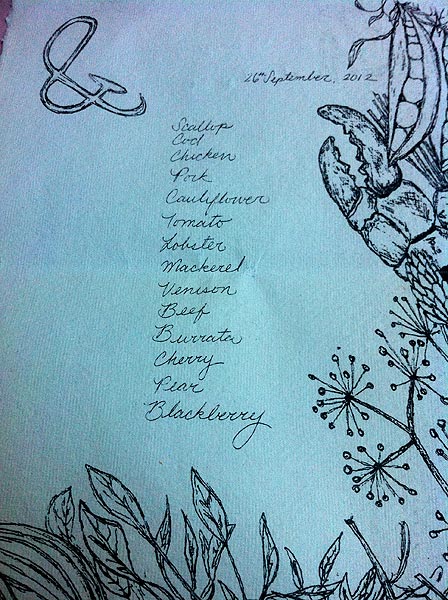 &
26th September, 2012
Scallop
Cod
Chicken
Pork
Cauliflower
Tomato
Lobster
Mackerel
Venison
Beef
Burrata
Cherry
Pear
Blackberry